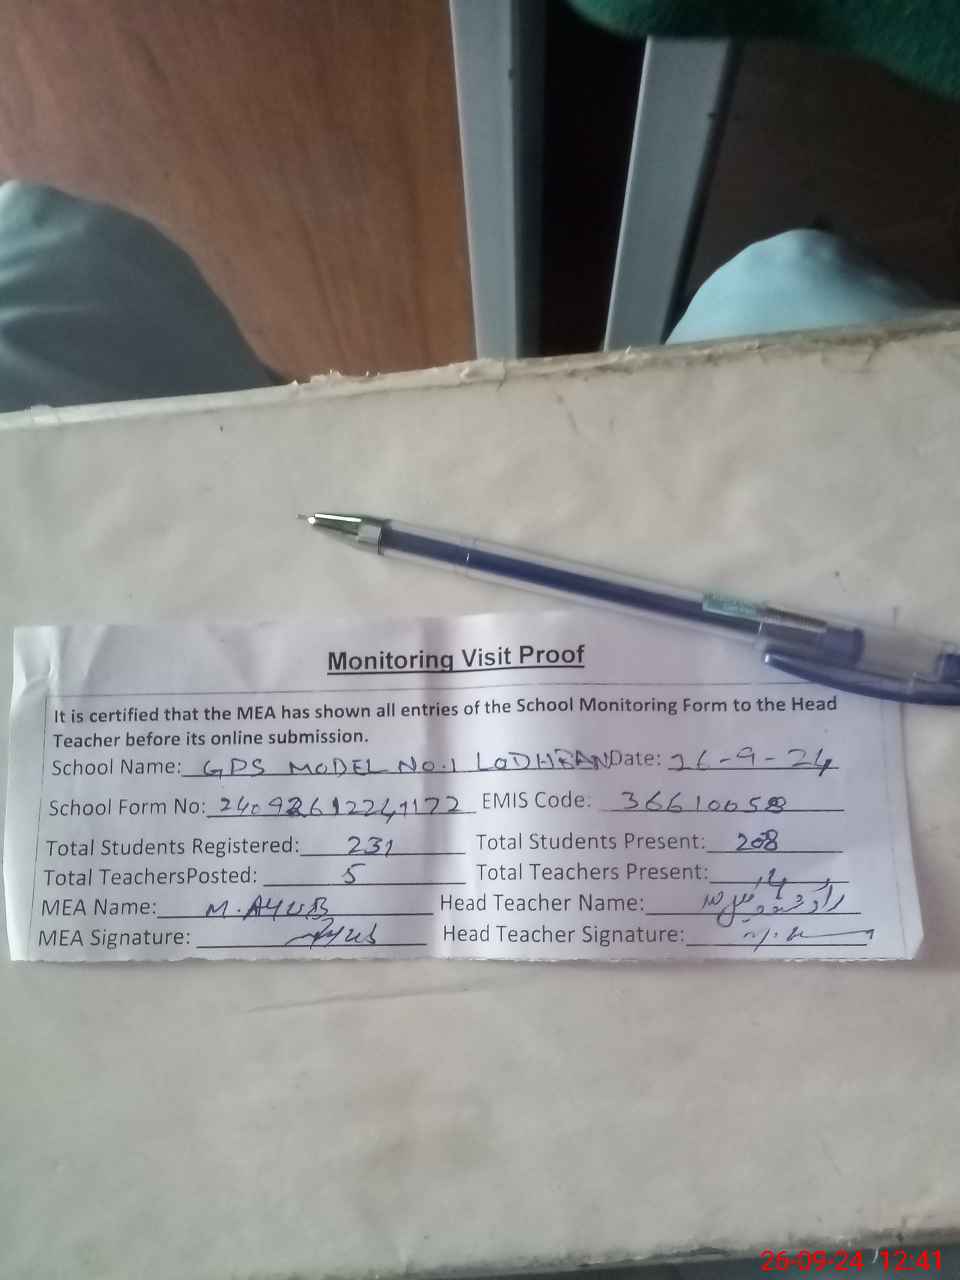 Monitoring Visit Proof
It is certified that the MEA has shown all entries of the School Monitoring Form to the Head
Teacher before its online submission.
School Name: GPS MODEL No.1 LODHRAN Date: 26-9-24
School Form No: EMIS Code: 36610058
Total Students Registered: 231 Total Students Present: 208
Total TeachersPosted: 5 Total Teachers Present: 4
MEA Name: M. AYUB Head Teacher Name:
MEA Signature: Ayub Head Teacher Signature:
26-09-24 12:41